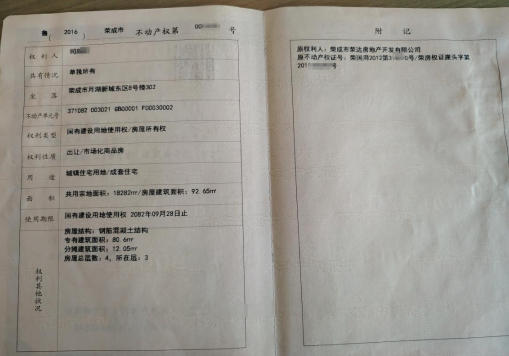 鲁(2016)荣成市不动产权第00号
权利人 司
共有情况 单独所有
坐落 荣成市月湖新城东区8号楼302
不动产单元号 371082 003021 GB00001 F00030002
权利类型 国有建设用地使用权/房屋所有权
权利性质 出让/市场化商品房
用途 城镇住宅用地/成套住宅
面积 共用宗地面积：18282㎡/房屋建筑面积：92.65㎡
使用期限 国有建设用地使用权 2082年09月28日止
权利其他状况
房屋结构：钢筋混凝土结构
专有建筑面积：80.6㎡
分摊建筑面积：12.05㎡
房屋总层数：4，所在层：3
附记
原权利人：荣成市荣达房地产开发有限公司
原不动产权证号：荣国用2012第3 0号/荣房权证崖头字第
201